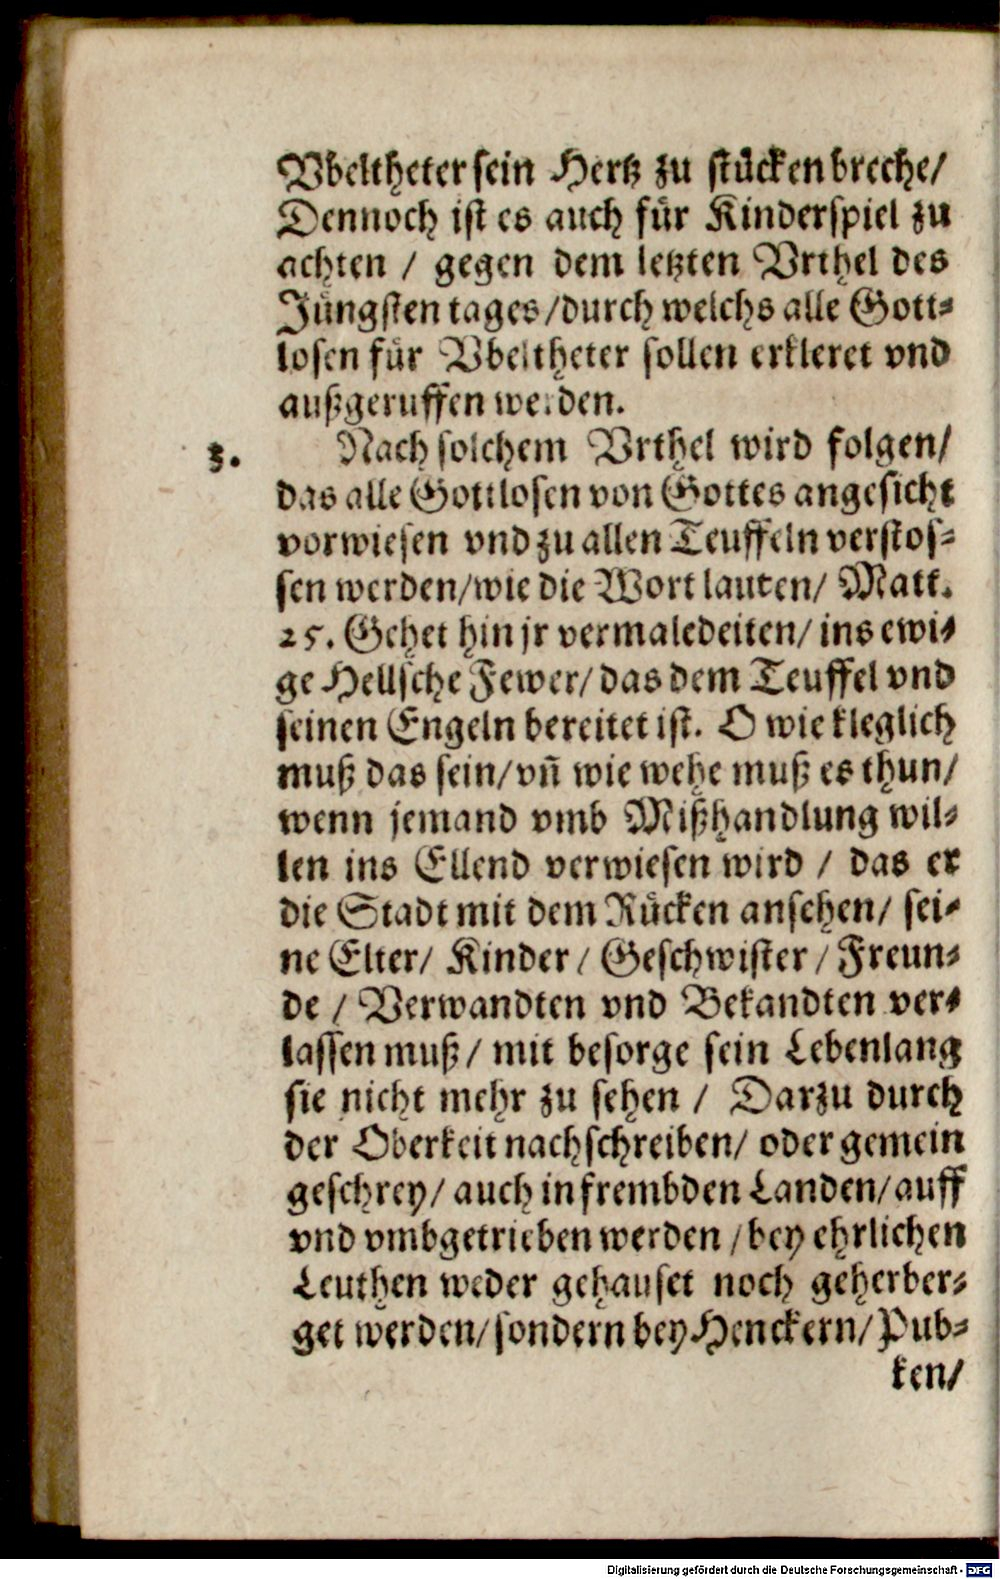 Vbeltheter sein Hertz zu stücken breche/
Dennoch ist es auch für Kinderspiel zu
achten / gegen dem letzten Vrthel des
Jüngsten tages/durch welchs alle Gott-
losen für Vbeltheter sollen erkleret vnd
außgeruffen werden.
3. Nach solchem Vrthel wird folgen/
das alle Gottlosen von Gottes angesicht
vorwiesen vnd zu allen Teuffeln verstos-
sen werden/wie die Wort lauten/ Matt.
25. Gehet hin jr vermaledeiten/ ins ewi-
ge Hellsche Fewer/ das dem Teuffel vnd
seinen Engeln bereitet ist. O wie kleglich
muß das sein/ vñ wie wehe muß es thun/
wenn jemand vmb Mißhandlung wil-
len ins Ellend verwiesen wird / das er
die Stadt mit dem Rücken ansehen/ sei-
ne Elter/ Kinder / Geschwister / Freun-
de / Verwandten vnd Bekandten ver-
lassen muß / mit besorge sein Lebenlang
sie nicht mehr zu sehen / Darzu durch
der Oberkeit nachschreiben/ oder gemein
geschrey/ auch in frembden Landen/ auff
vnd vmbgetrieben werden / bey ehrlichen
Leuthen weder gehauset noch geherber-
get werden/ sondern bey Henckern/ Pub-
ken/
Digitalisierung gefördert durch die Deutsche Forschungsgemeinschaft - DFG